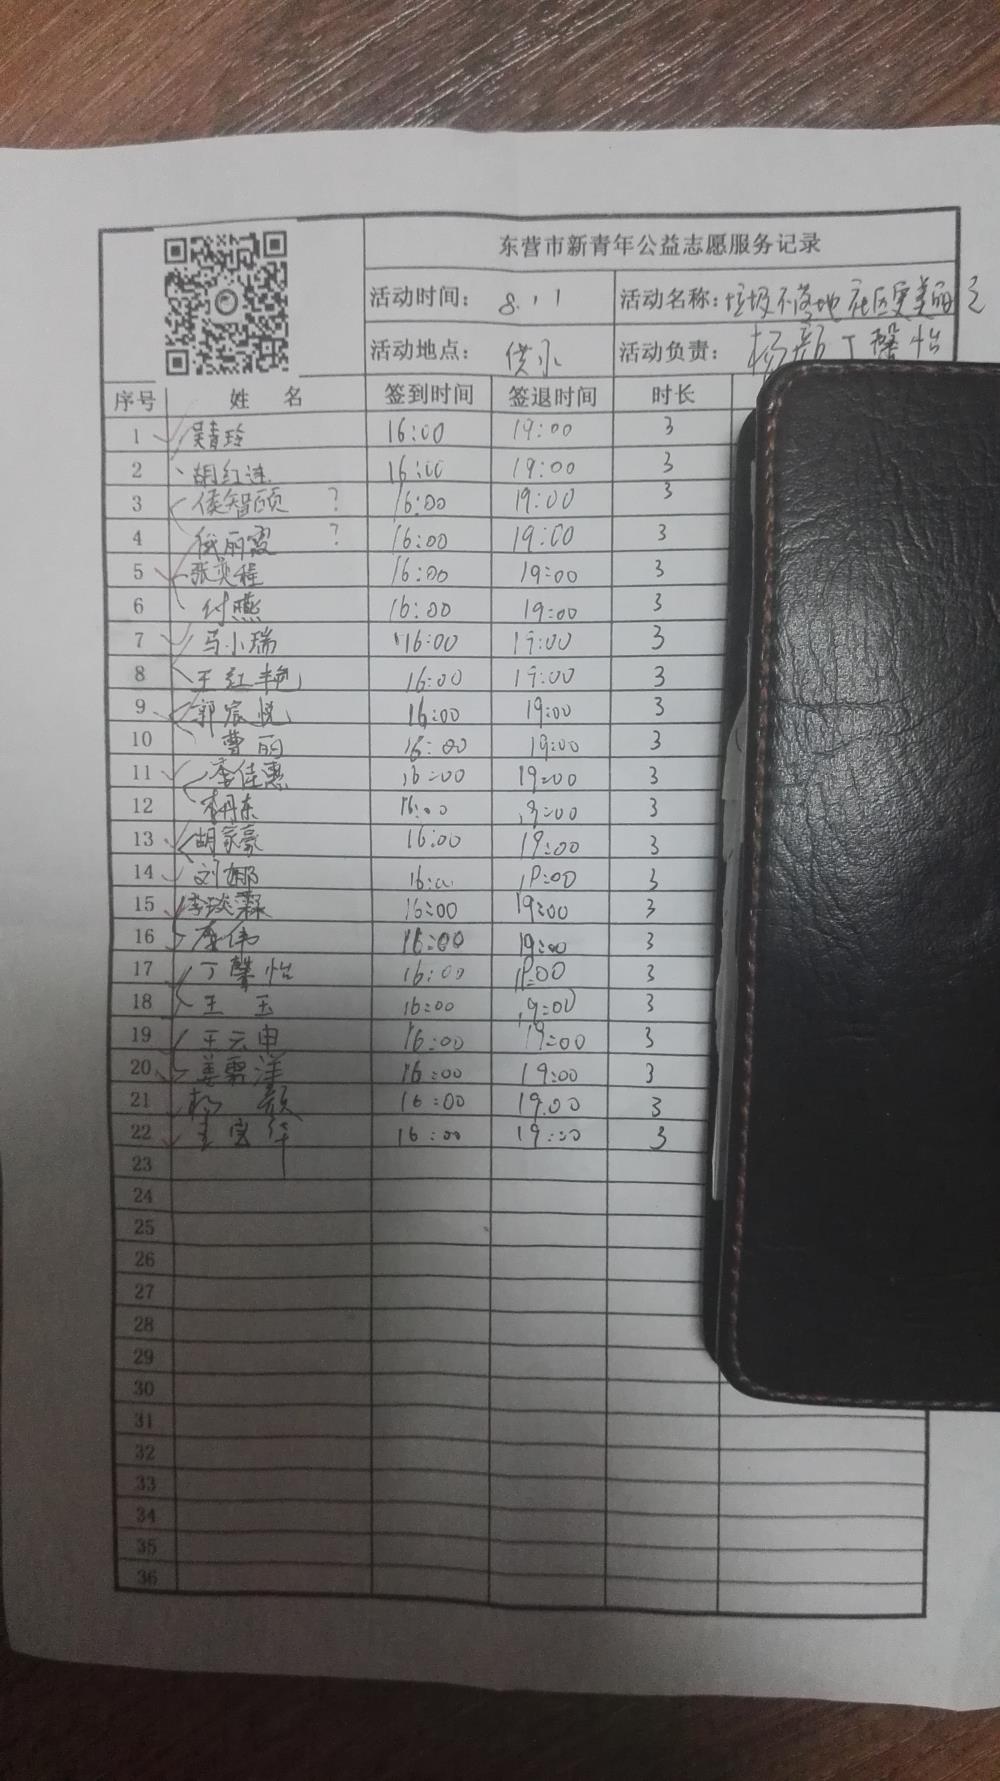 东营市新青年公益志愿服务记录
活动时间： 8.11 活动名称：垃圾不落地 社区更美丽
活动地点： 供水 活动负责： 杨颜 丁馨怡
序号 姓 名 签到时间 签退时间 时长
1 吴青玲 16:00 19:00 3
2 胡红连 16:00 19:00 3
3 侯智颐 ? 16:00 19:00 3
4 丽霞 ? 16:00 19:00 3
5 张奕程 16:00 19:00 3
6 付燕 16:00 19:00 3
7 马小瑞 16:00 19:00 3
8 王红艳 16:00 19:00 3
9 郭宸悦 16:00 19:00 3
10 曹丽 16:00 19:00 3
11 李佳惠 16:00 19:00 3
12 16:00 19:00 3
13 胡家豪 16:00 19:00 3
14 刘娜 16:00 19:00 3
15 李琰霖 16:00 19:00 3
16 16:00 19:00 3
17 丁馨怡 16:00 19:00 3
18 王 玉 16:00 19:00 3
19 王云申 16:00 19:00 3
20 姜霁洋 16:00 19:00 3
21 杨 颜 16:00 19.00 3
22 16:00 19:00 3
23
24
25
26
27
28
29
30
31
32
33
34
35
36